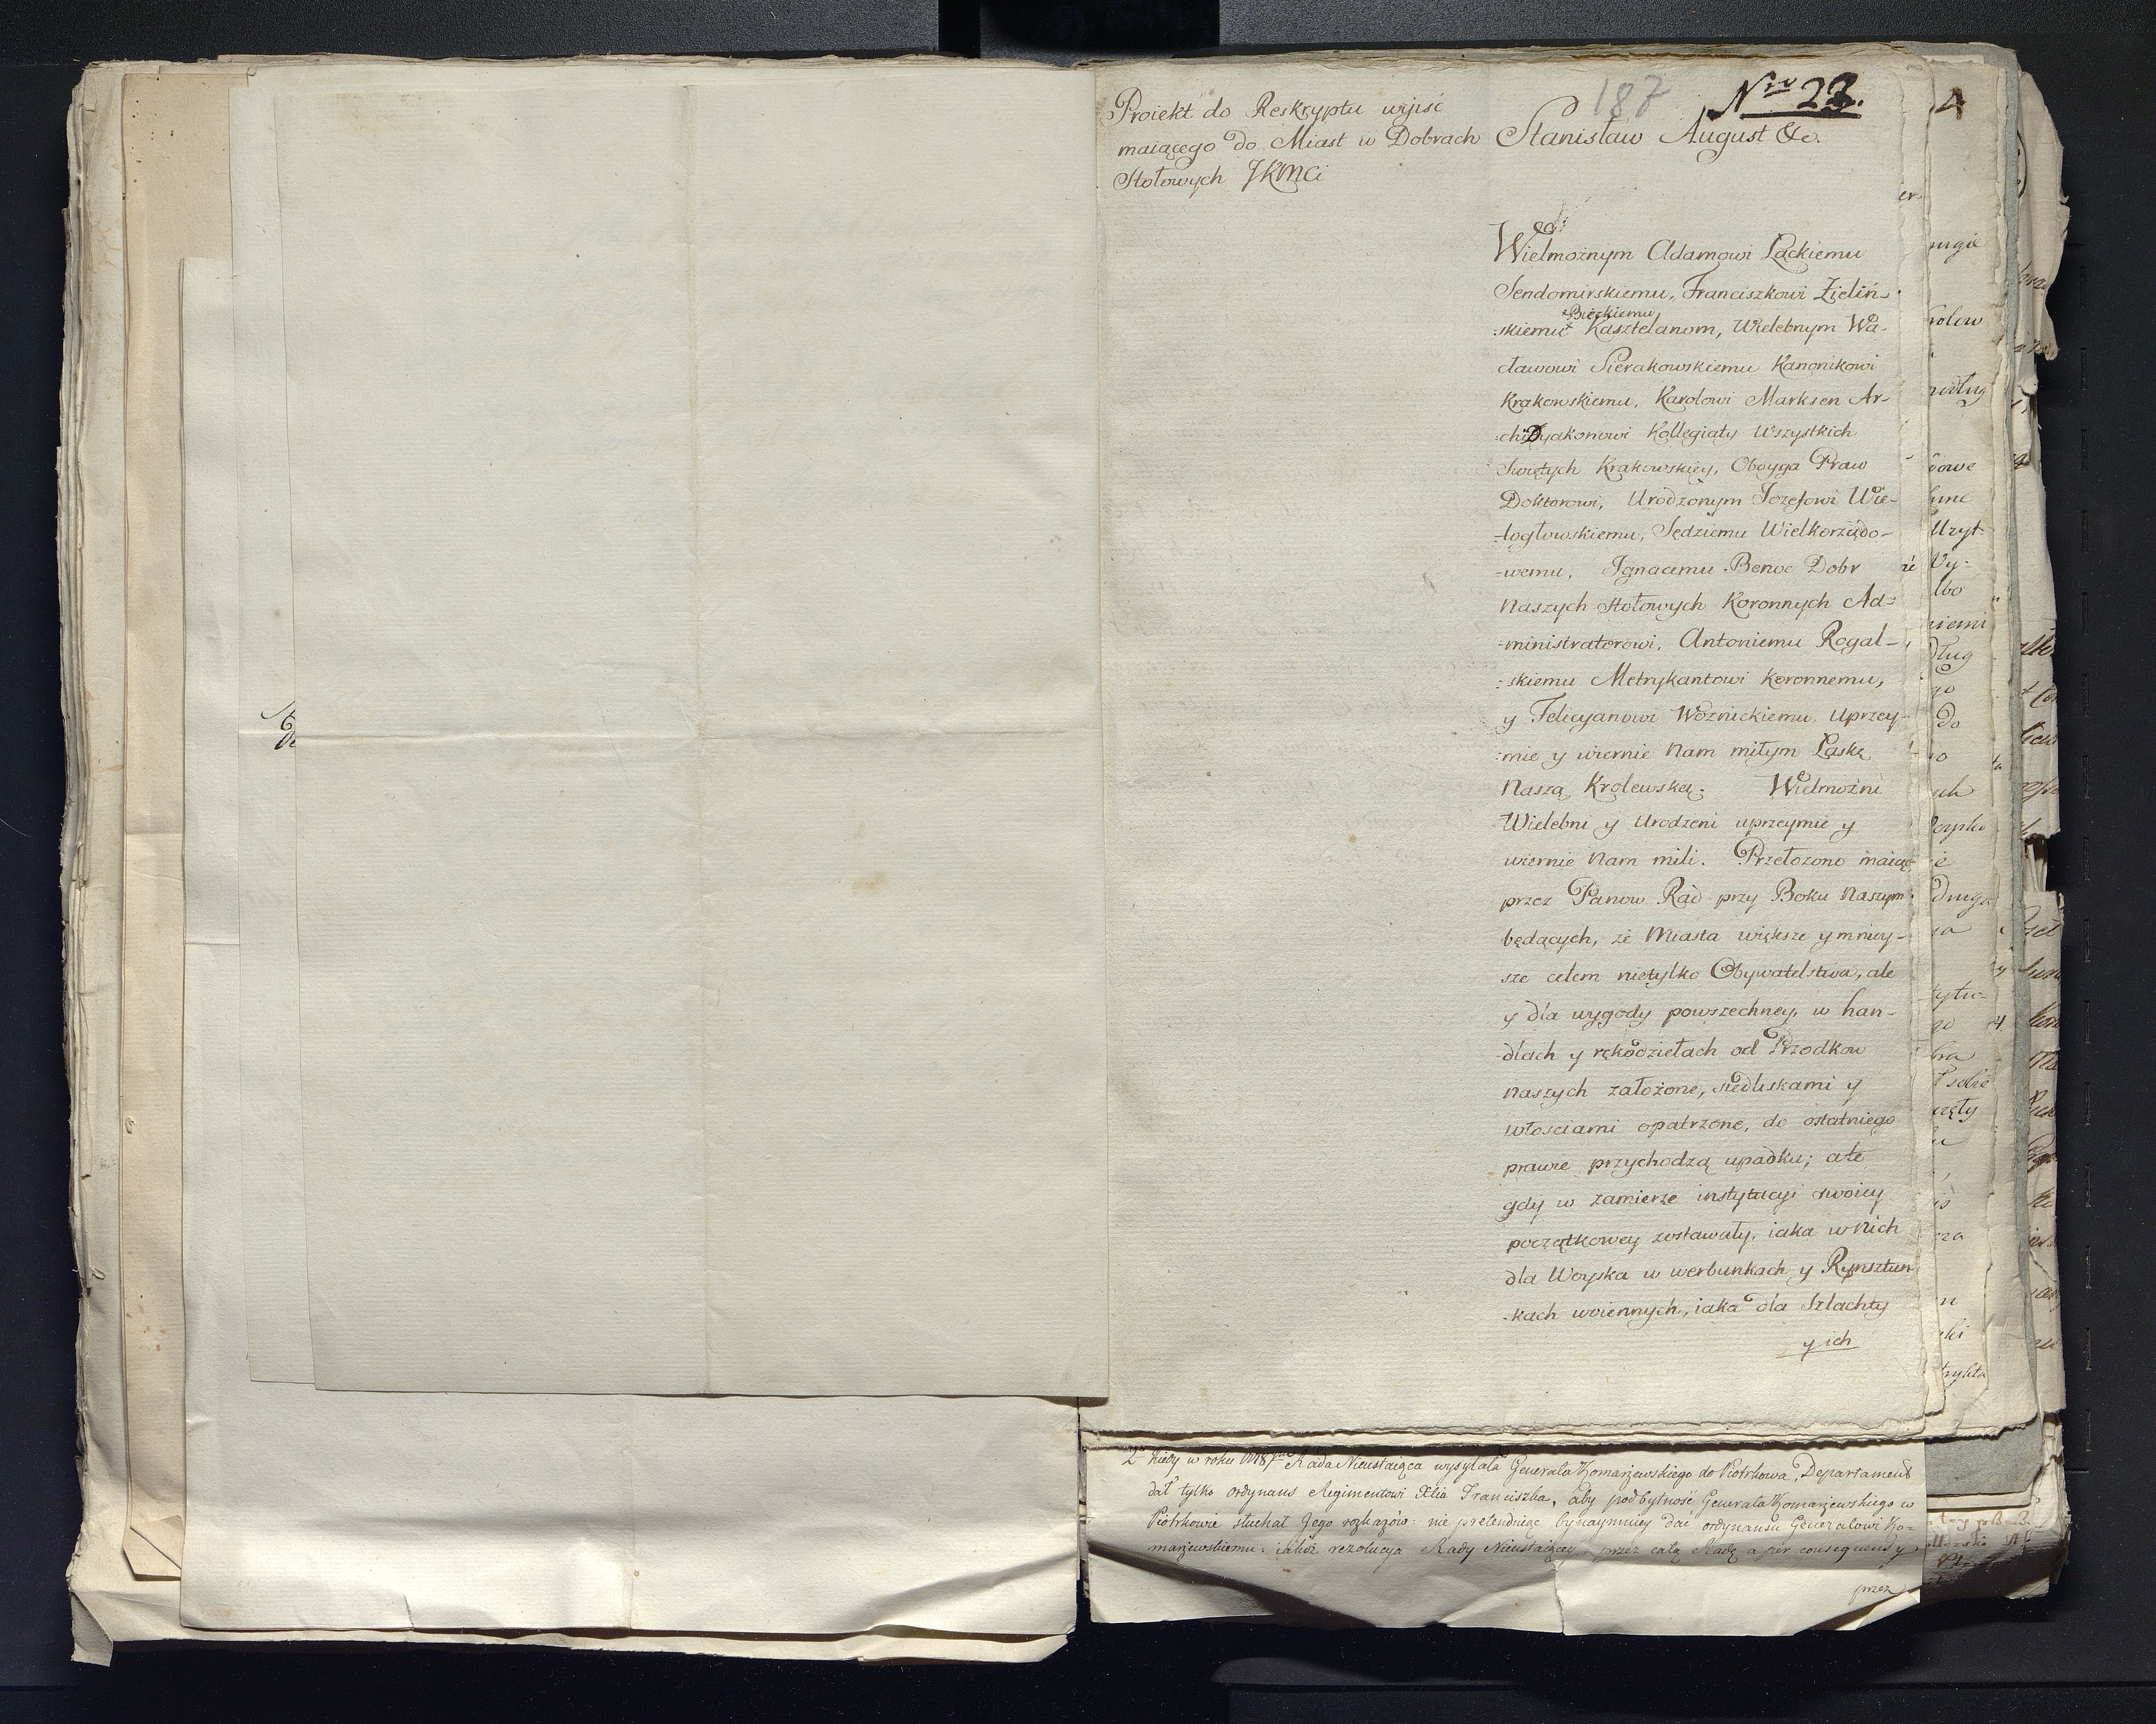 187
Nro 22.
Proiekt do Reskryptu wyisć
maiącego do Miast w Dobrach
Stołowych JKMci
Stanisław August &c.
Wielmożnym Adamowi Łackiemu
Sendomirskiemu, Franciszkowi Zieliń-
:skiemu Bieckiemu Kasztelanom, Wielebnym Wa-
cławowi Sierakowskiemu Kanonikowi
Krakowskiemu, Karolowi Marksen Ar-
:chiDyakonowi Kollegiaty Wszystkich
Swiętych Krakowskiey, Oboyga Praw
Doktorowi, Urodzonym Jozefowi Wie-
-logłowskiemu, Sędziemu Wielkorządo-
-wemu, Ignacemu Benoe Dobr
Naszych Stołowych Koronnych Ad-
-ministratorowi, Antoniemu Rogal-
:skiemu Metrykantowi Koronnemu,
y Felicyanowi Woznickiemu, Uprzey-
:mie y wiernie Nam miłym Łaskę
Naszą Krolewską. Wielmożni
Wielebni y Urodzeni uprzeymie y
wiernie Nam mili. Przełożono maiąc
przez Panow Rad przy Boku Naszym
będących, że Miasta większe y mniey-
sze celem nietylko Obywatelstwa, ale
y dla wygody powszechney, w han-
-dlach y rękodziełach od Przodkow
Naszych założone, siedliskami y
włosciami opatrzone, do ostatniego
prawie przychodzą upadku; ale
gdy w zamierze instytucyi swoiey
początkowey zostawały, iaka w Nich
dla Woyska w werbunkach y Rynsztun
-kach woiennych, iaka dla Szlachty
y ich
2do Kiedy w roku 1787mo Rada Nieustaiąca wysyłała Generała Komarzewskiego do Piotrkowa, Departament
dał tylko ordynans Regimentowi Xcia Franciszka, aby pod bytność Generała Komarzewskiego w
Piotrkowie słuchał Jego rozkazów: nie pretenduiąc bynaymniey dać ordynansu Generałowi Ko-
marzewskiemu: iakoż rezolucya Rady Nieustaiącey, przez całą Radę a per consequens y
przez